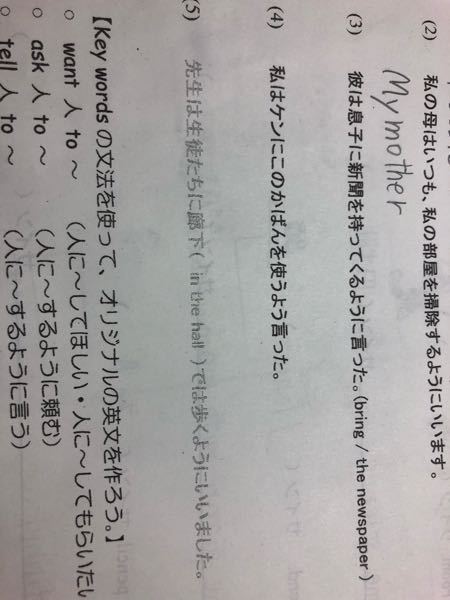 (2) 私の母はいつも、私の部屋を掃除するようにいいます。
My mother
(3) 彼は息子に新聞を持ってくるように言った。(bring / the newspaper)
(4) 私はケンにこのかばんを使うよう言った。
(5) 先生は生徒たちに廊下( in the hall )では歩くようにいいました。
【Key words の文法を使って、オリジナルの英文を作ろう。】
○ want 人 to ～ (人に～してほしい・人に～してもらいたい
○ ask 人 to ～ (人に～するように頼む)
○ tell 人 to ～ (人に～するように言う)